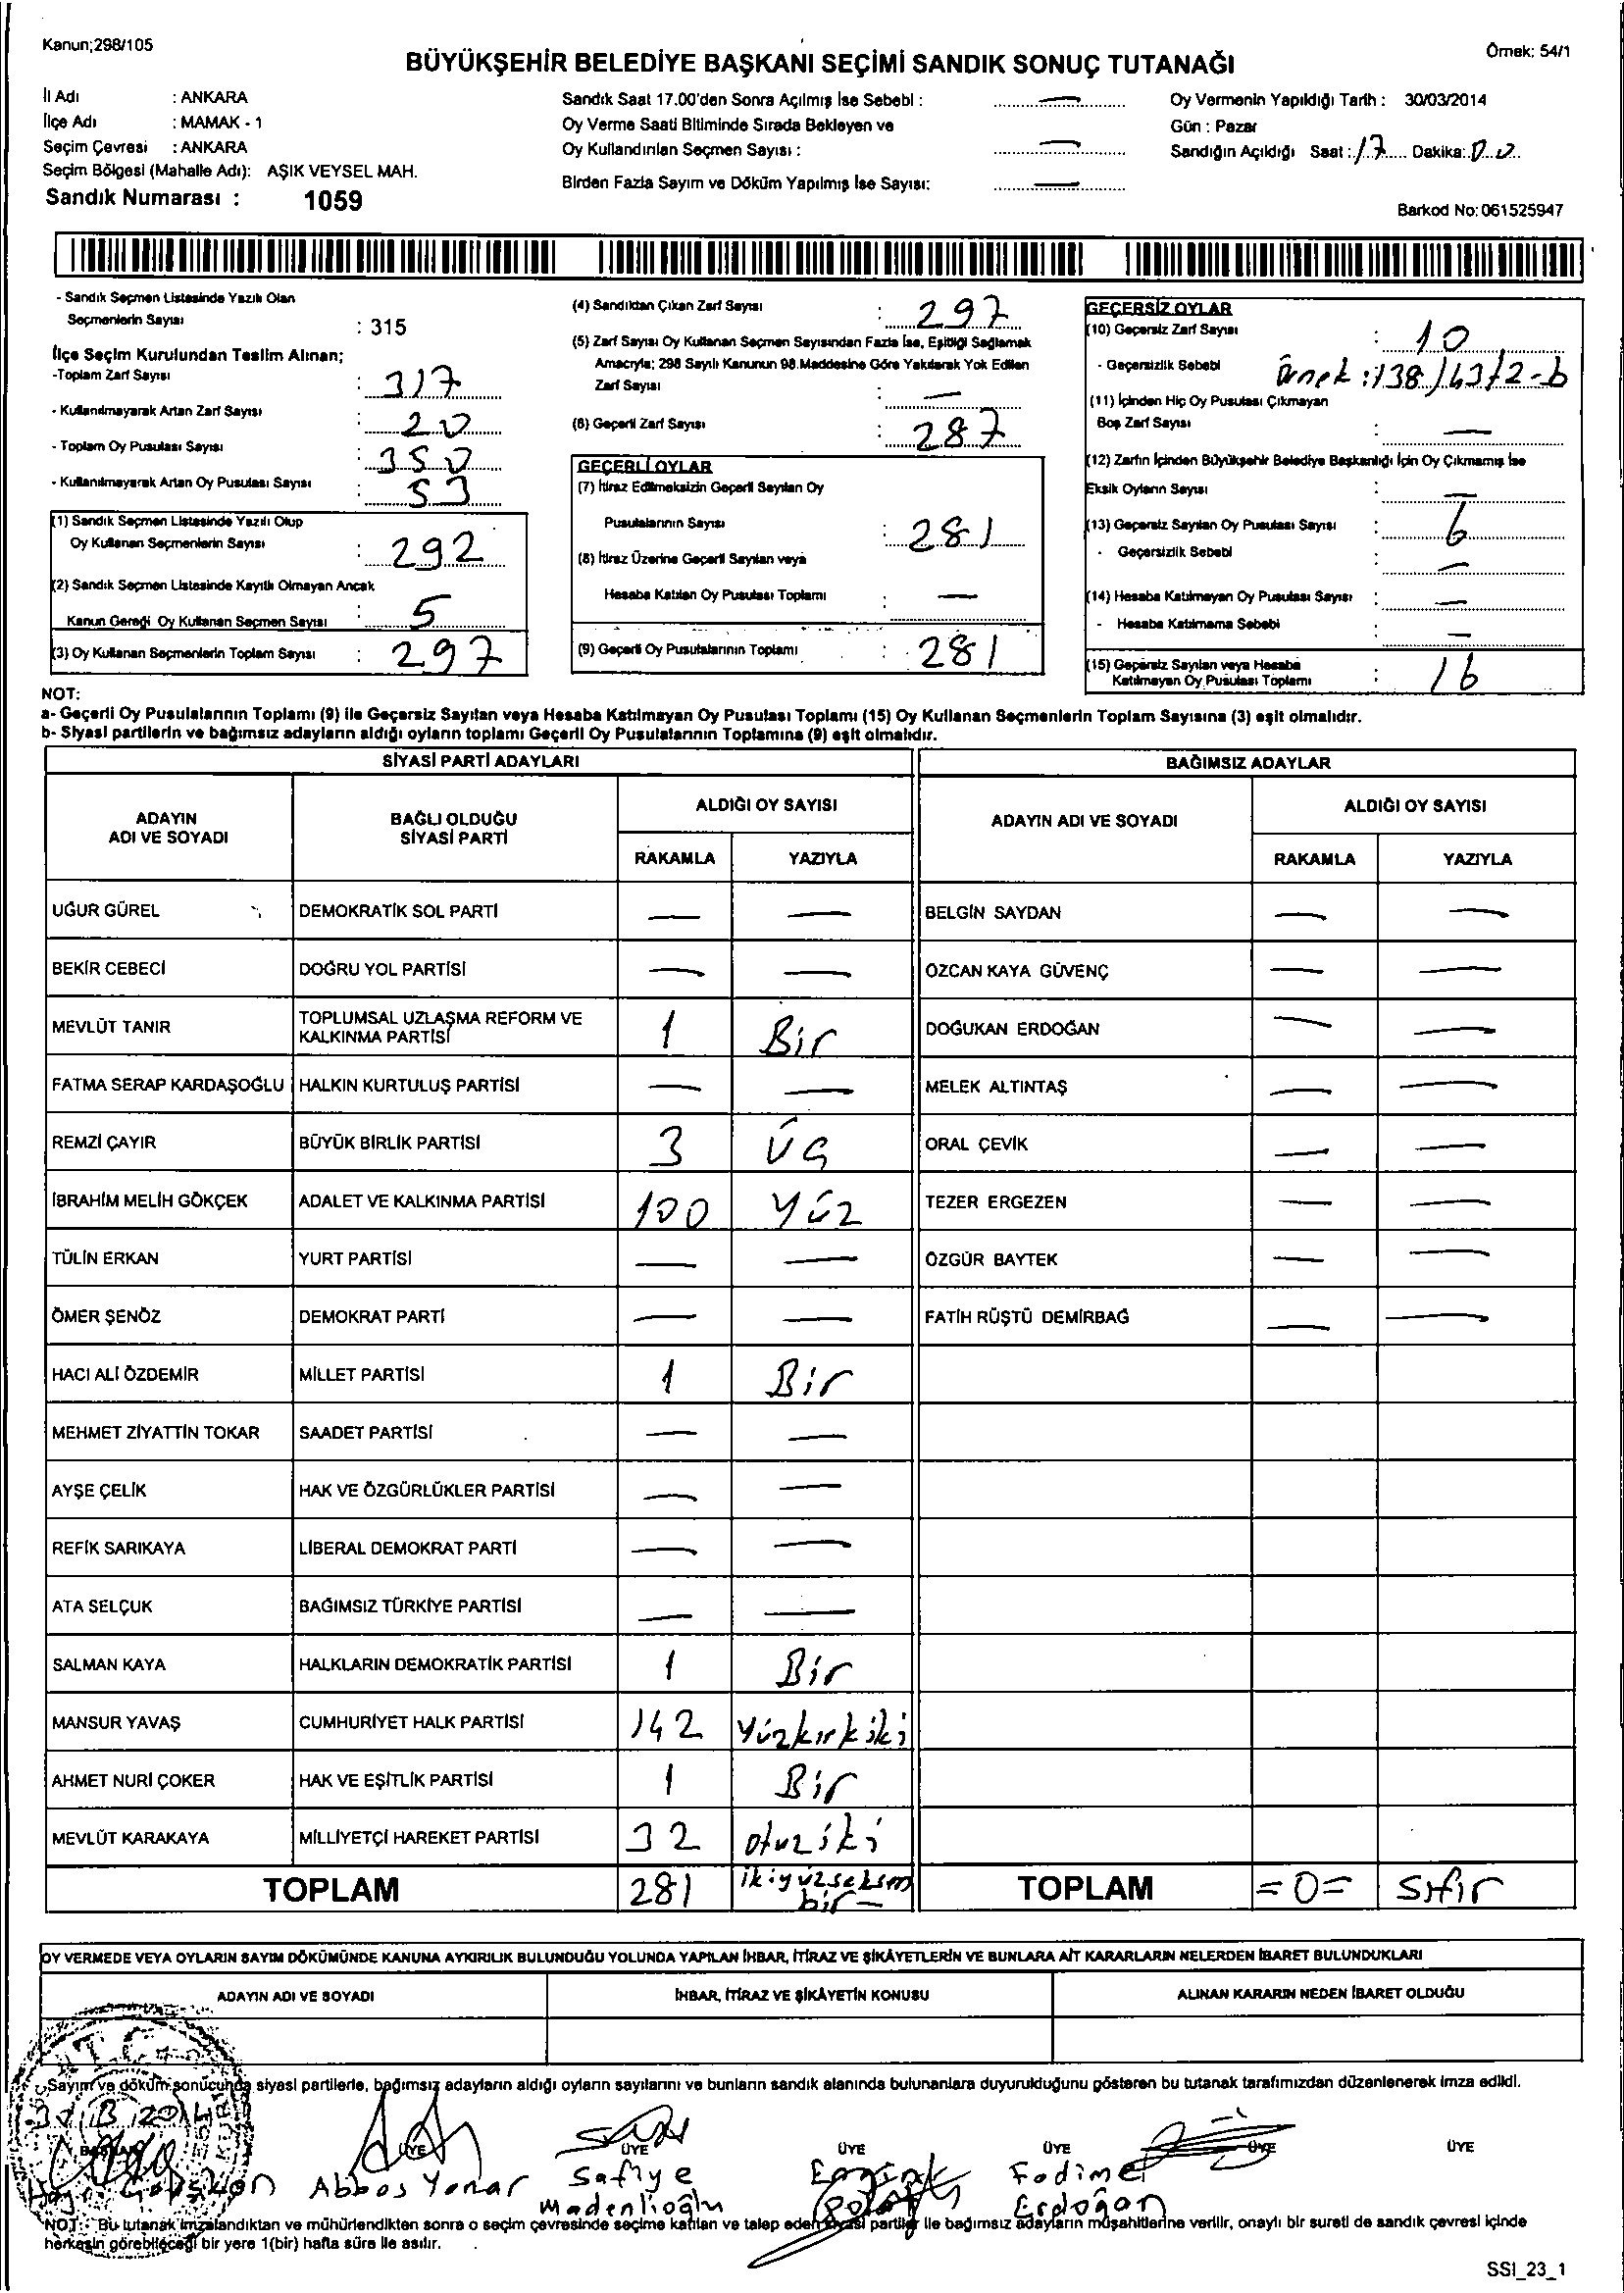 Kanun;298/105
Örnek: 54/1
BÜYÜKŞEHİR BELEDİYE BAŞKANI SEÇİMİ SANDIK SONUÇ TUTANAĞI
İl Adı : ANKARA
İlçe Adı : MAMAK - 1
Seçim Çevresi : ANKARA
Seçim Bölgesi (Mahalle Adı): AŞIK VEYSEL MAH.
Sandık Numarası : 1059
Sandık Saat 17.00'den Sonra Açılmış İse Sebebi : —
Oy Verme Saati Bitiminde Sırada Bekleyen ve
Oy Kullandırılan Seçmen Sayısı : —
Birden Fazla Sayım ve Döküm Yapılmış İse Sayısı: —
Oy Vermenin Yapıldığı Tarih : 30/03/2014
Gün : Pazar
Sandığın Açıldığı Saat : 17 Dakika: 00
Barkod No: 061525947
- Sandık Seçmen Listesinde Yazılı Olan
Seçmenlerin Sayısı : 315
İlçe Seçim Kurulundan Teslim Alınan;
-Toplam Zarf Sayısı : 317
- Kullanılmayarak Artan Zarf Sayısı : 20
- Toplam Oy Pusulası Sayısı : 350
- Kullanılmayarak Artan Oy Pusulası Sayısı : 53
(1) Sandık Seçmen Listesinde Yazılı Olup
Oy Kullanan Seçmenlerin Sayısı : 292
(2) Sandık Seçmen Listesinde Kayıtlı Olmayan Ancak
Kanun Gereği Oy Kullanan Seçmen Sayısı : 5
(3) Oy Kullanan Seçmenlerin Toplam Sayısı : 297
(4) Sandıktan Çıkan Zarf Sayısı : 297
(5) Zarf Sayısı Oy Kullanan Seçmen Sayısından Fazla İse, Eşitliği Sağlamak
Amacıyla; 298 Sayılı Kanunun 98.Maddesine Göre Yakılarak Yok Edilen
Zarf Sayısı : —
(6) Geçerli Zarf Sayısı : 287
GEÇERLİ OYLAR
(7) İtiraz Edilmeksizin Geçerli Sayılan Oy
Pusulalarının Sayısı : 281
(8) İtiraz Üzerine Geçerli Sayılan veya
Hesaba Katılan Oy Pusulası Toplamı : —
(9) Geçerli Oy Pusulalarının Toplamı : 281
GEÇERSİZ OYLAR
(10) Geçersiz Zarf Sayısı : 10
- Geçersizlik Sebebi Örnek :138/43/2-b
(11) İçinden Hiç Oy Pusulası Çıkmayan
Boş Zarf Sayısı : —
(12) Zarfın İçinden Büyükşehir Belediye Başkanlığı İçin Oy Çıkmamış İse
Eksik Oyların Sayısı : —
(13) Geçersiz Sayılan Oy Pusulası Sayısı : 6
- Geçersizlik Sebebi —
(14) Hesaba Katılmayan Oy Pusulası Sayısı : —
- Hesaba Katılmama Sebebi —
(15) Geçersiz Sayılan veya Hesaba
Katılmayan Oy Pusulası Toplamı : 16
NOT:
a- Geçerli Oy Pusulalarının Toplamı (9) ile Geçersiz Sayılan veya Hesaba Katılmayan Oy Pusulası Toplamı (15) Oy Kullanan Seçmenlerin Toplam Sayısına (3) eşit olmalıdır.
b- Siyasi partilerin ve bağımsız adayların aldığı oyların toplamı Geçerli Oy Pusulalarının Toplamına (9) eşit olmalıdır.
SİYASİ PARTİ ADAYLARI
ADAYIN ADI VE SOYADI BAĞLI OLDUĞU SİYASİ PARTİ ALDIĞI OY SAYISI
RAKAMLA YAZIYLA
UĞUR GÜREL DEMOKRATİK SOL PARTİ — —
BEKİR CEBECİ DOĞRU YOL PARTİSİ — —
MEVLÜT TANIR TOPLUMSAL UZLAŞMA REFORM VE KALKINMA PARTİSİ 1 Bir
FATMA SERAP KARDAŞOĞLU HALKIN KURTULUŞ PARTİSİ — —
REMZİ ÇAYIR BÜYÜK BİRLİK PARTİSİ 3 Üç
İBRAHİM MELİH GÖKÇEK ADALET VE KALKINMA PARTİSİ 100 Yüz
TÜLİN ERKAN YURT PARTİSİ — —
ÖMER ŞENÖZ DEMOKRAT PARTİ — —
HACI ALİ ÖZDEMİR MİLLET PARTİSİ 1 Bir
MEHMET ZİYATTİN TOKAR SAADET PARTİSİ — —
AYŞE ÇELİK HAK VE ÖZGÜRLÜKLER PARTİSİ — —
REFİK SARIKAYA LİBERAL DEMOKRAT PARTİ — —
ATA SELÇUK BAĞIMSIZ TÜRKİYE PARTİSİ — —
SALMAN KAYA HALKLARIN DEMOKRATİK PARTİSİ 1 Bir
MANSUR YAVAŞ CUMHURİYET HALK PARTİSİ 142 Yüzkırkiki
AHMET NURİ ÇOKER HAK VE EŞİTLİK PARTİSİ 1 Bir
MEVLÜT KARAKAYA MİLLİYETÇİ HAREKET PARTİSİ 32 otuziki
TOPLAM 281 ikiyüzseksen
bir —
BAĞIMSIZ ADAYLAR
ADAYIN ADI VE SOYADI ALDIĞI OY SAYISI
RAKAMLA YAZIYLA
BELGİN SAYDAN — —
ÖZCAN KAYA GÜVENÇ — —
DOĞUKAN ERDOĞAN — —
MELEK ALTINTAŞ — —
ORAL ÇEVİK — —
TEZER ERGEZEN — —
ÖZGÜR BAYTEK — —
FATİH RÜŞTÜ DEMİRBAĞ — —
TOPLAM =0= Sıfır
OY VERMEDE VEYA OYLARIN SAYIM DÖKÜMÜNDE KANUNA AYKIRILIK BULUNDUĞU YOLUNDA YAPILAN İHBAR, İTİRAZ VE ŞİKÂYETLERİN VE BUNLARA AİT KARARLARIN NELERDEN İBARET BULUNDUKLARI
ADAYIN ADI VE SOYADI İHBAR, İTİRAZ VE ŞİKÂYETİN KONUSU ALINAN KARARIN NEDEN İBARET OLDUĞU
Sayım ve döküm sonucunda siyasi partilerle, bağımsız adayların aldığı oyların sayılarını ve bunların sandık alanında bulunanlara duyurulduğunu gösteren bu tutanak tarafımızdan düzenlenerek imza edildi.
BAŞKAN ÜYE ÜYE ÜYE ÜYE ÜYE ÜYE
Abbas Yanar Safiye Fadime
Madenlioğlu Erdoğan
NOT: Bu tutanak imzalandıktan ve mühürlendikten sonra o seçim çevresinde seçime katılan ve talep eden siyasi partiler ile bağımsız adayların müşahitlerine verilir, onaylı bir sureti de sandık çevresi içinde
herkesin görebileceği bir yere 1(bir) hafta süre ile asılır.
SSI_23_1